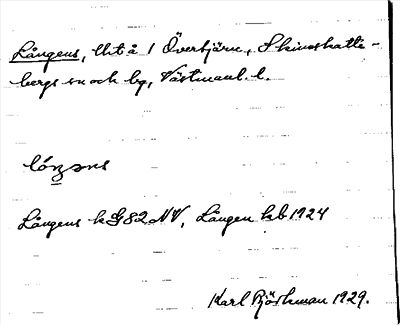 Långens, lht å 1 Överbjärn, Skinnskatte-
bergs sn och bg, Västmanl. l.
lóŋəns
Långens kG82NV, Lången kb 1924
Karl Björkman 1929.